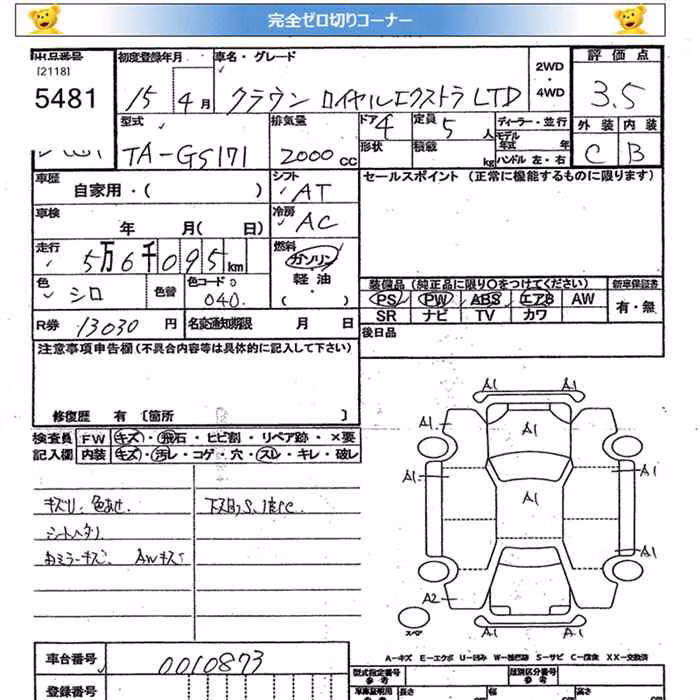 完全ゼロ切りコーナー
出品番号 初度登録年月 車名・グレード 2WD・4WD 評価点
[2118]
5481 15 4月 クラウン ロイヤルエクストラLTD 3.5
型式 排気量 ドア 4 定員 5人 ディーラー・並行 外装 内装
TA-GS171 2000cc 形状 積載 kg モデル年式 年 ハンドル 左・右 C B
車歴 自家用・( ) シフト AT セールスポイント (正常に機能するものに限ります)
車検 年 月( 日) 冷房 AC
走行 5万6千095km 燃料 ガソリン 軽油 ( )
色 シロ 色替 色コード 040 装備品(純正品に限り○をつけてください) 新車保証書
PS PW ABS エアB AW 有・無
SR ナビ TV カワ
R券 13030円 名変通知期限 月 日 後日品
注意事項申告欄(不具合内容等は具体的に記入して下さい)
修復歴 有 [箇所 ]
検査員 FW キズ・飛石・ヒビ割・リペア跡・×要
記入欄 内装 キズ・汚レ・コゲ・穴・スレ・キレ・破レ
キズリ、色あせ.
シートヘタリ
右ミラーキズ. AWキズ
A1 A1
A1 A1 A1
A1 A1 A1
A1
A2 A1
スペア A1 A1
A-キズ E-エクボ U-凹み W-補修跡 S-サビ C-腐食 XX-交換済
車台番号 0010873 型式指定番号 参考 類別区分番号 参考
登録番号 車庫証明用 参考 長さ 幅 高さ